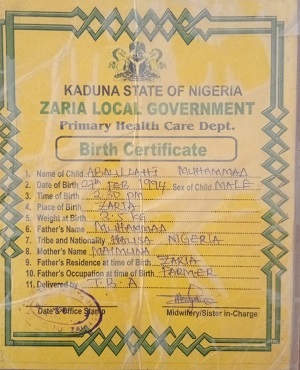 KADUNA STATE OF NIGERIA
ZARIA LOCAL GOVERNMENT
Primary Health Care Dept.
Birth Certificate
1. Name of Child ABDULLAHI MUHAMMAD
2. Date of Birth 07th FEB 1994 Sex of Child MALE
3. Time of Birth 2:30 PM
4. Place of Birth ZARIA
5. Weight at Birth 3.5 KG
6. Father's Name MUHAMMAD
7. Tribe and Nationality HAUSA NIGERIA
8. Mother's Name MAIMUNA
9. Father's Residence at time of Birth ZARIA
10. Father's Occupation at time of Birth FARMER
11. Delivered by T.B.A
Date & Office Stamp Midwifery/Sister in-Charge